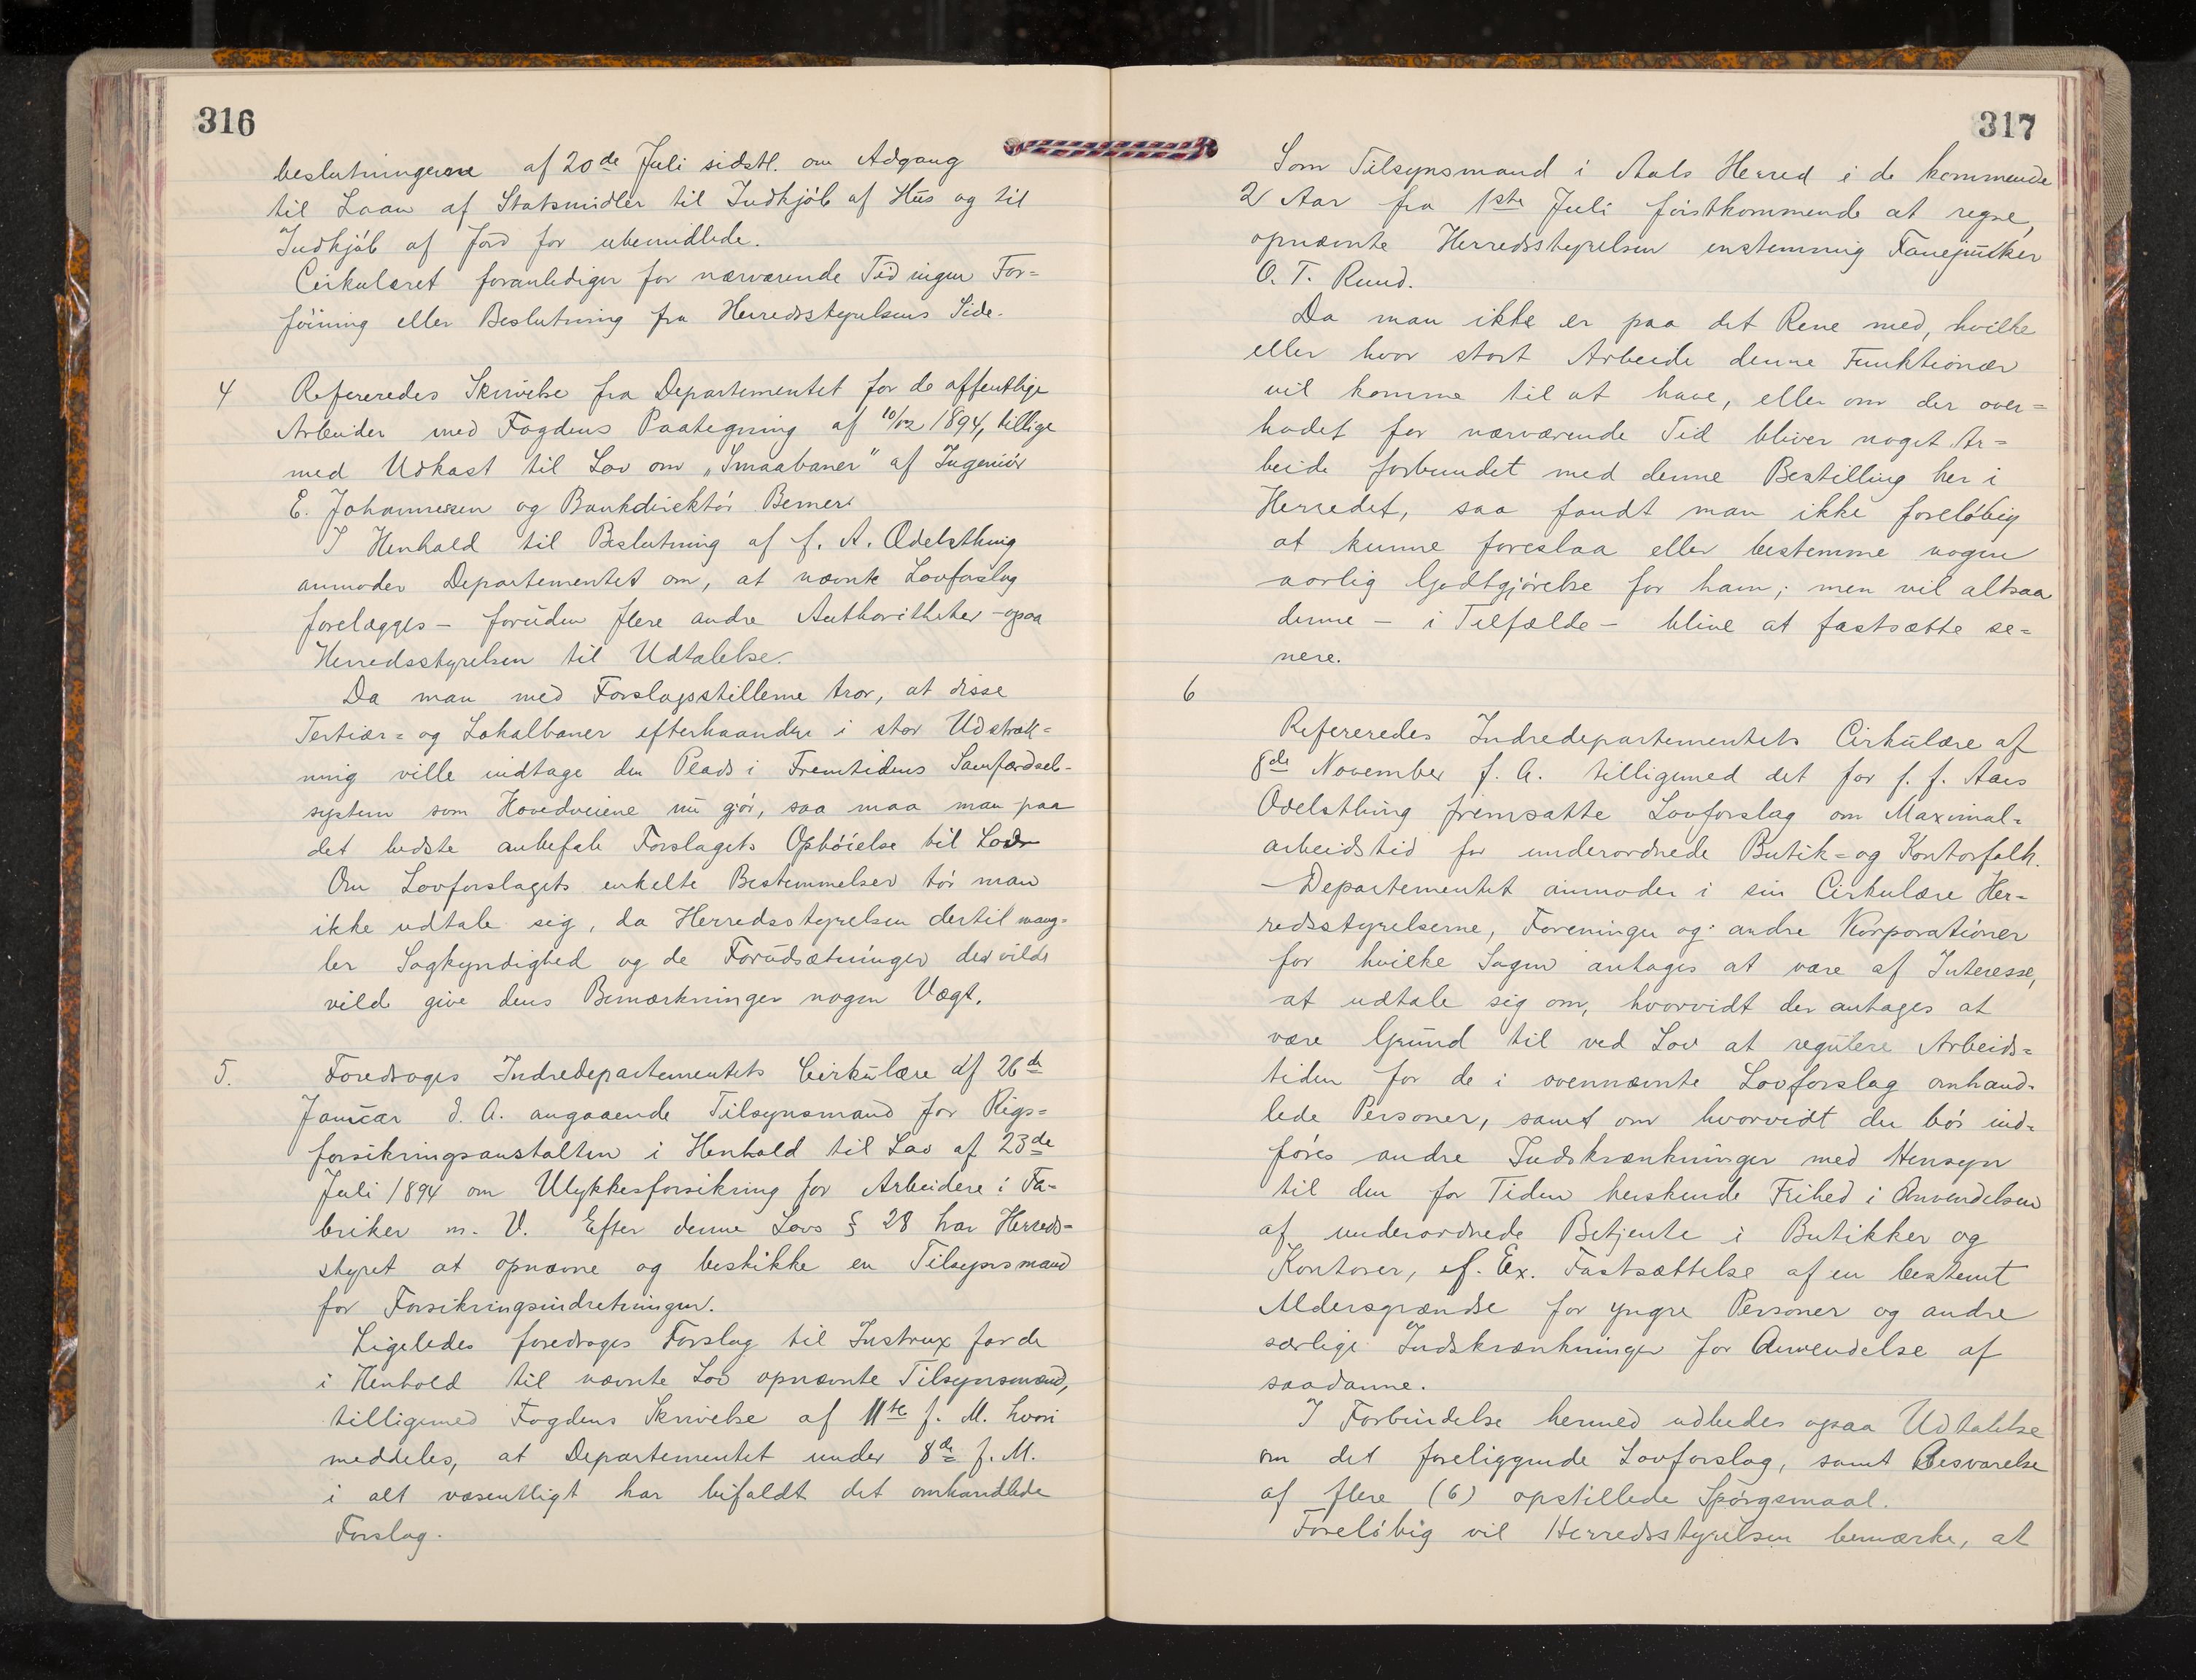 316
beslutningerne af 20de Juli sidstl. om Adgang
til Laan af Statsmidler til Indkjöb af Hus og til
Indkjöb af Jord for ubemidlede.
Cirkulæret foranlediger for nærværende Tid ingen For=
föining eller Beslutning fra Herredsstyrelsens Side.
4 Refereredes Skrivelse fra Departementet for de offentlige
Arbeider med Fogdens Paategning af 10/12 1894, tillige
med Udkast til Lov om „Smaabaner" af Ingeniör
E. Johannesen og Bankdirektör Berner.
I Henhold til Beslutning af f. A. Odelsthing
anmoder Departementet om, at nævnte Lovforslag
forelægges – foruden flere andre Authoritheter – ogsaa
Herredsstyrelsen til Udtalelse.
Da man med Forslagsstillerne tror, at disse
Tertiær= og Lokalbaner efterhaanden i stor Udstræk=
ning ville indtage den Plads i Fremtidens Samfærdsel-
system som Hovedveiene nu gjör, saa maa man paa
det bedste anbefale Forslagets Ophöielse til Lov.
Om Lovforslagets enkelte Bestemmelser tör man
ikke udtale sig, da Herredsstyrelsen dertil mang=
ler Sagkyndighed og de Forudsætninger der vilde
vilde give dens Bemærkninger nogen Vægt.
5. Foredroges Indredepartementets Cirkulære af 26de
Januar d. A. angaaende Tilsynsmand for Rigs=
forsikringsanstalten i Henhold til Lov af 23de
Juli 1894 om Ulykkesforsikring for Arbeidere i Fa-
briker m. V. Efter denne Lovs § 28 har Herreds=
styret at opnævne og beskikke en Tilsynsmand
for Forsikringsindretningen.
Ligeledes foredroges Forslag til Instrux for de
i Henhold til nævnte Lov opnævnte Tilsynsmænd,
tilligemed Fogdens Skrivelse af 11te f. M. hvori
meddeles, at Departementet under 8de f. M.
i alt væsentligt har bifaldt det omhandlede
Forslag.
317
Som Tilsynsmand i Aals Herred i de kommende
2 Aar fra 1ste Juli förstkommende at regne,
opnævnte Herredsstyrelsen enstemmig Fanejunker
O. T. Ruud.
Da man ikke er paa det Rene med, hvilke
eller hvor stort Arbeide denne Funktionær
vil komme til at have, eller om der over=
hodet for nærværende Tid bliver noget Ar=
beide forbundet med denne Bestilling her i
Herredet, saa fandt man ikke forelöbig
at kunne foreslaa eller bestemme nogen
aarlig Godtgjörelse for ham; men vil altsaa
denne – i Tilfælde – blive at fastsætte se=
nere.
6
Refereredes Indredepartementets Cirkulære af
8de November f. A. tilligemed det for f. f. Aars
Odelsthing fremsatte Lovforslag om Maximal=
arbeidstid for underordnede Butik= og Kontorfolk.
– Departementet anmoder i sin Cirkulære Her=
redsstyrelserne, Foreninger og andre Korporationer
for hvilke Sagen antages at være af Interesse,
at udtale sig om, hvorvidt der antages at
være Grund til ved Lov at regulere Arbeids=
tiden for de i ovennævnte Lovforslag omhand=
lede Personer, samt om hvorvidt der bör ind=
föres andre Indskrænkninger med Hensyn
til den for Tiden herskende Frihed i Anvendelsen
af underordnede Betjente i Butikker og
Kontorer, f. Ex. Fastsættelse af en bestemt
Aldersgrændse for yngre Personer og andre
særlige Indskrænkninger for Anvendelse af
saadanne.
I Forbindelse hermed udbedes ogsaa Udtalelse
om det foreliggende Lovforslag, samt Besvarelse
af flere (6) opstillede Spörgsmaal.
Forelöbig vil Herredsstyrelsen bemærke, at